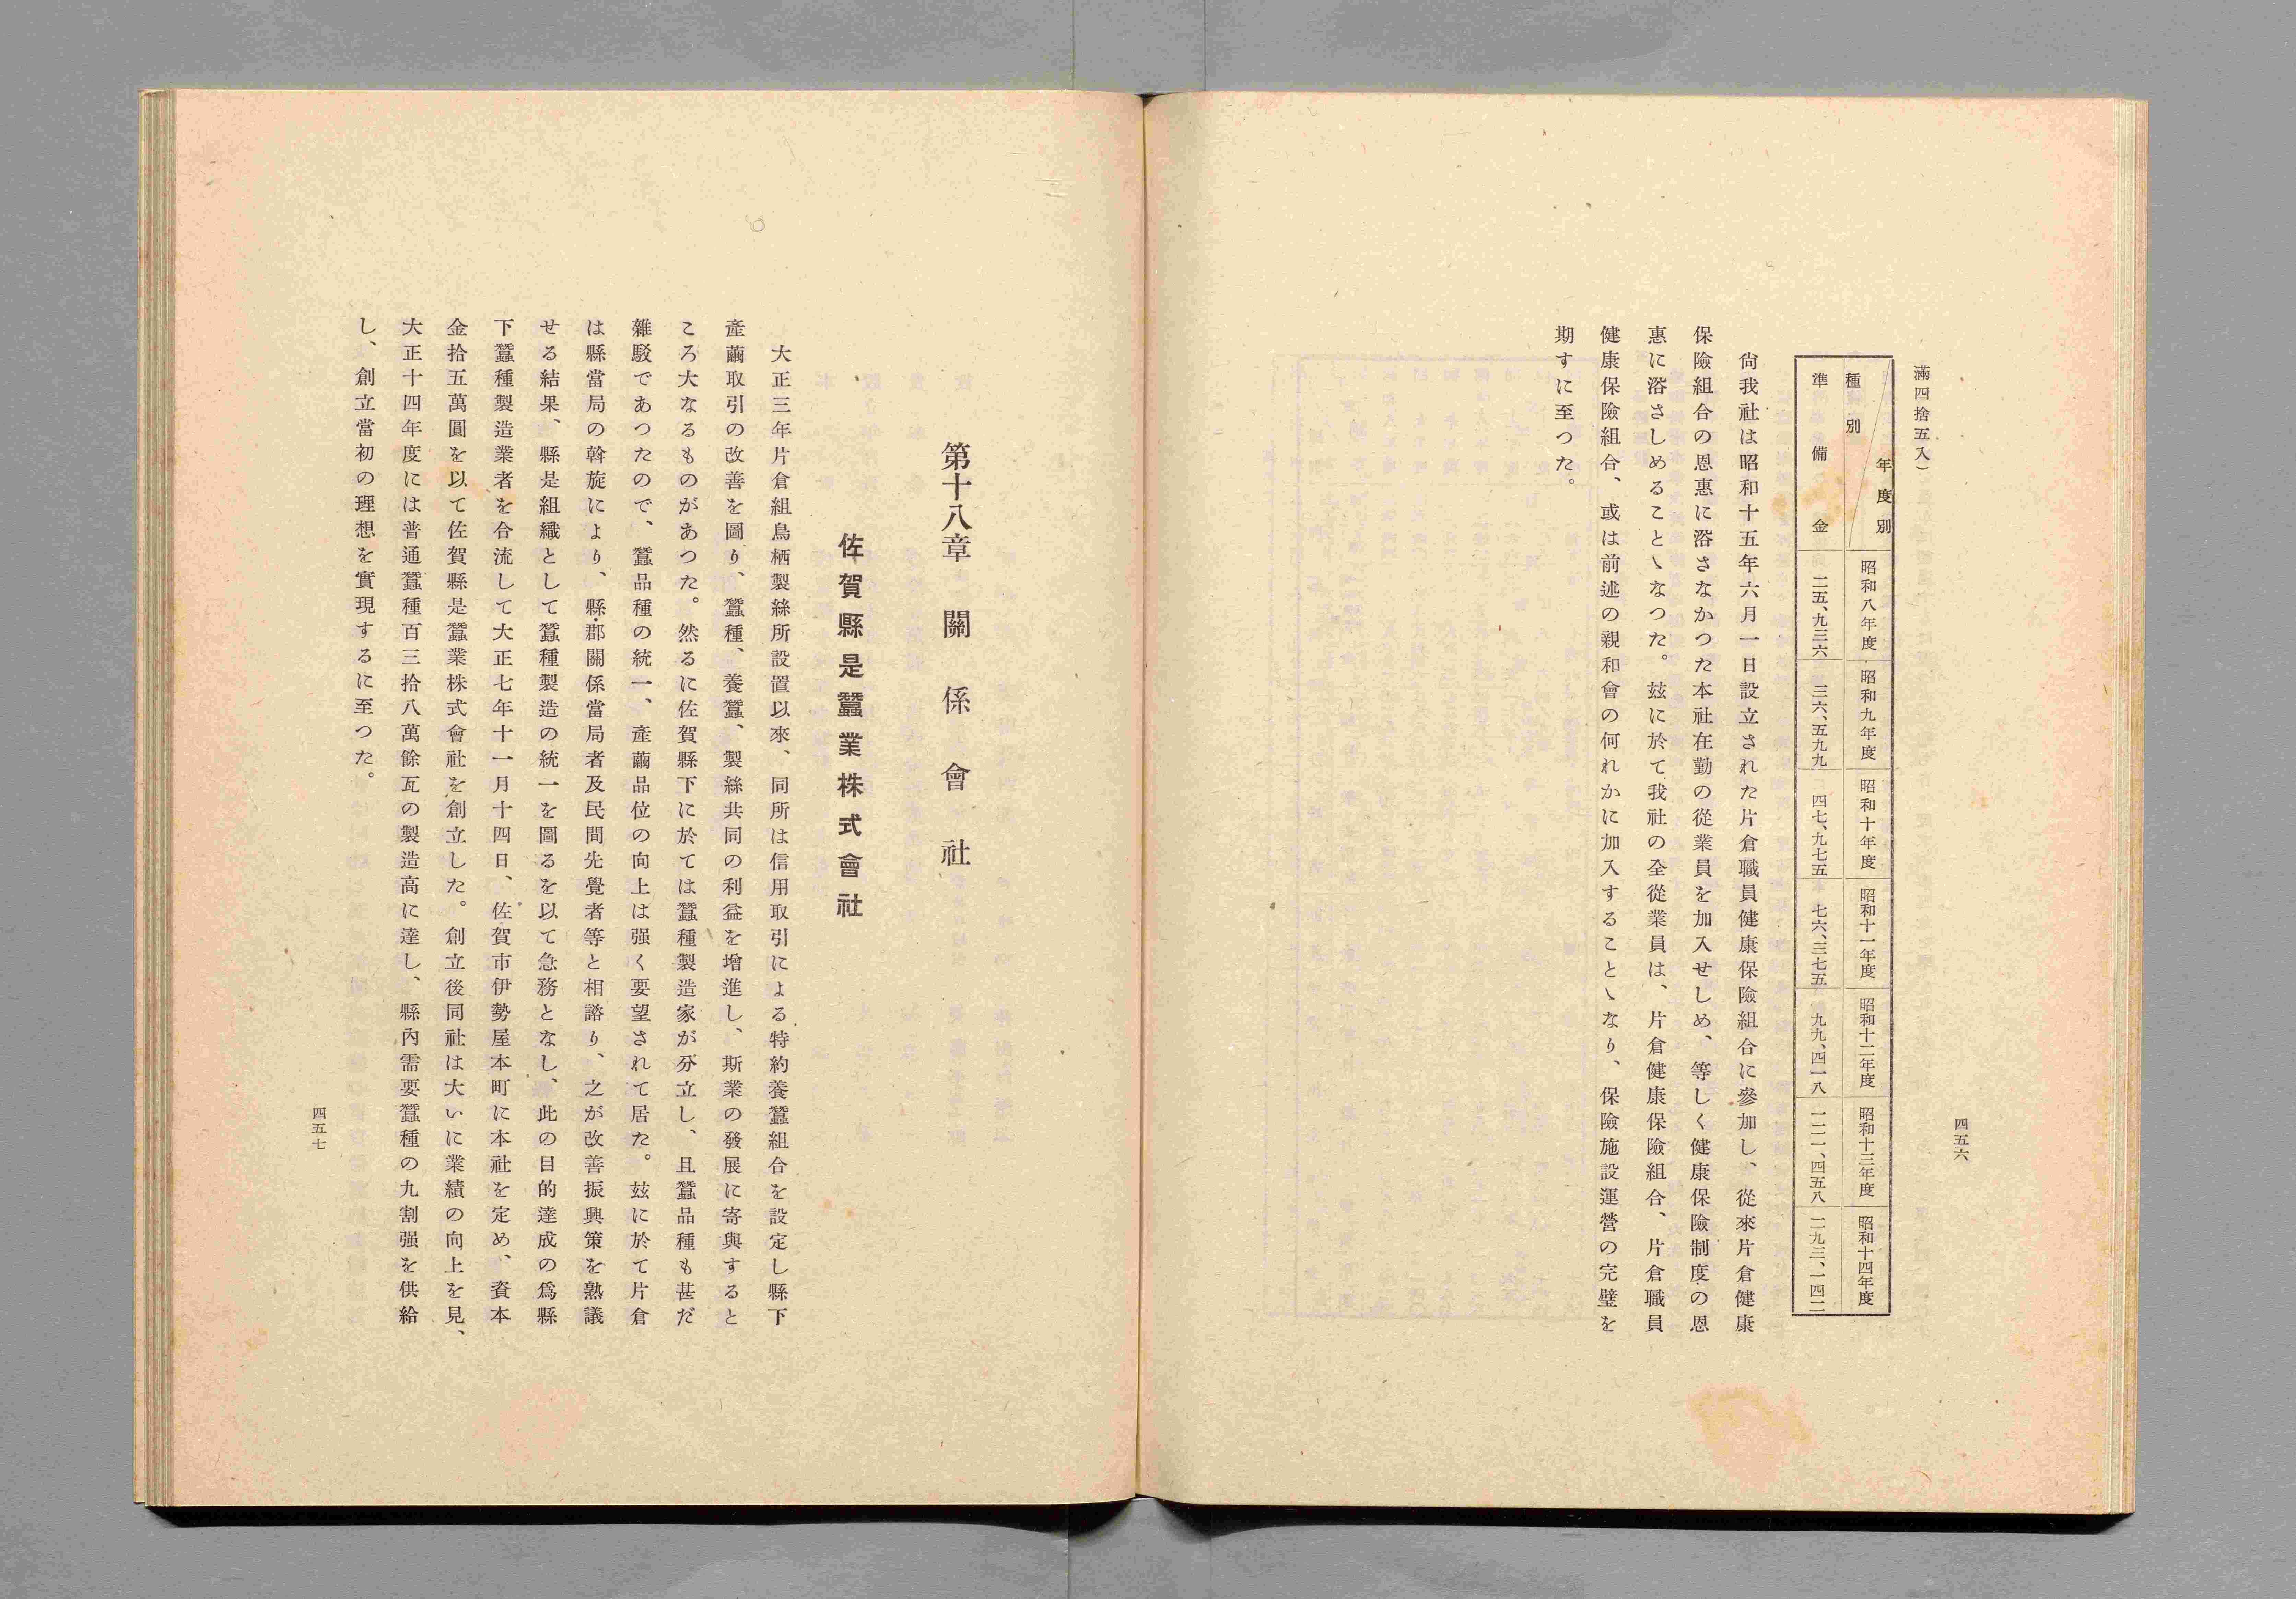 滿四捨五入)
四五六
種別 年度別 昭和八年度 昭和九年度 昭和十年度 昭和十一年度 昭和十二年度 昭和十三年度 昭和十四年度
準備金 二五、九三六 三六、五九九 四七、九七五 七六、三七五 九九、四一八 一二一、四五八 二九三、一四二
尙我社は昭和十五年六月一日設立された片倉職員健康保險組合に參加し、從來片倉健康
保險組合の恩惠に浴さなかつた本社在勤の從業員を加入せしめ、等しく健康保險制度の恩
惠に浴さしめることヽなつた。玆に於て我社の全從業員は、片倉健康保險組合、片倉職員
健康保險組合、或は前述の親和會の何れかに加入することヽなり、保險施設運營の完璧を
期すに至つた。
第十八章 關係會社
佐賀縣是蠶業株式會社
大正三年片倉組鳥栖製絲所設置以來、同所は信用取引による特約養蠶組合を設定し縣下
產繭取引の改善を圖り、蠶種、養蠶、製絲共同の利益を增進し、斯業の發展に寄與すると
ころ大なるものがあつた。然るに佐賀縣下に於ては蠶種製造家が分立し、且蠶品種も甚だ
雜駁であつたので、蠶品種の統一、產繭品位の向上は强く要望されて居た。玆に於て片倉
は縣當局の斡旋により、縣・郡關係當局者及民間先覺者等と相謀り、之が改善振興策を熟議
せる結果、縣是組織として蠶種製造の統一を圖るを以て急務となし、此の目的達成の爲縣
下蠶種製造業者を合流して大正七年十一月十四日、佐賀市伊勢屋本町に本社を定め、資本
金拾五萬圓を以て佐賀縣是蠶業株式會社を創立した。創立後同社は大いに業績の向上を見、
大正十四年度には普通蠶種百三拾八萬餘瓦の製造高に達し、縣內需要蠶種の九割强を供給
し、創立當初の理想を實現するに至つた。
四五七